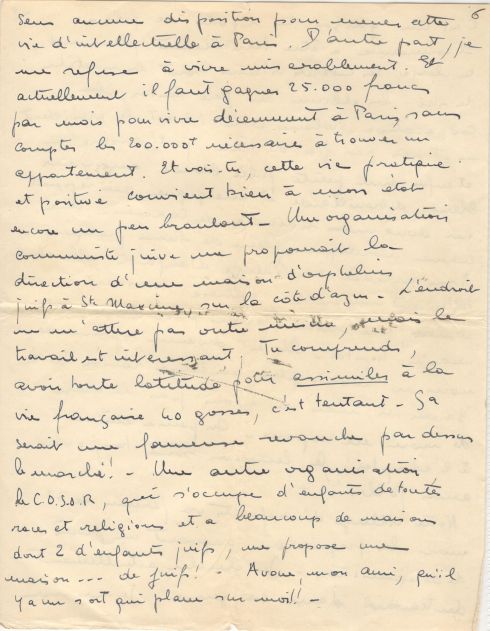 6
sens aucune disposition pour mener cette
vie d'intellectuelle à Paris. D'autre part, je
me refuse à vivre misérablement. Et
actuellement il faut gagner 25.000 francs
par mois pour vivre décemment à Paris, sans
compter les 200.000f nécessaires à trouver un
appartement. Et vois-tu, cette vie pratique
et positive convient bien à mon état
encore un peu branlant - Une organisation
communiste juive me proposerait la
direction d'une maison d'orphelins
juifs à Ste Maxime, sur la côte d'azur - L'endroit
ne m'attire pas outre mesure, mais le
travail est intéressant, Tu comprends,
avoir toute latitude pour assimiler à la
vie française 40 gosses, c'est tentant - Ça
serait une fameuse revanche par dessus
le marché! - Une autre organisation
le C.O.S.O.R, qui s'occupe d'enfants de toutes
races et religions et a beaucoup de maisons
dont 2 d'enfants juifs, me propose une
maison --- de juifs! - Avoue, mon ami, qu'il
y a un sort qui plane sur moi! -